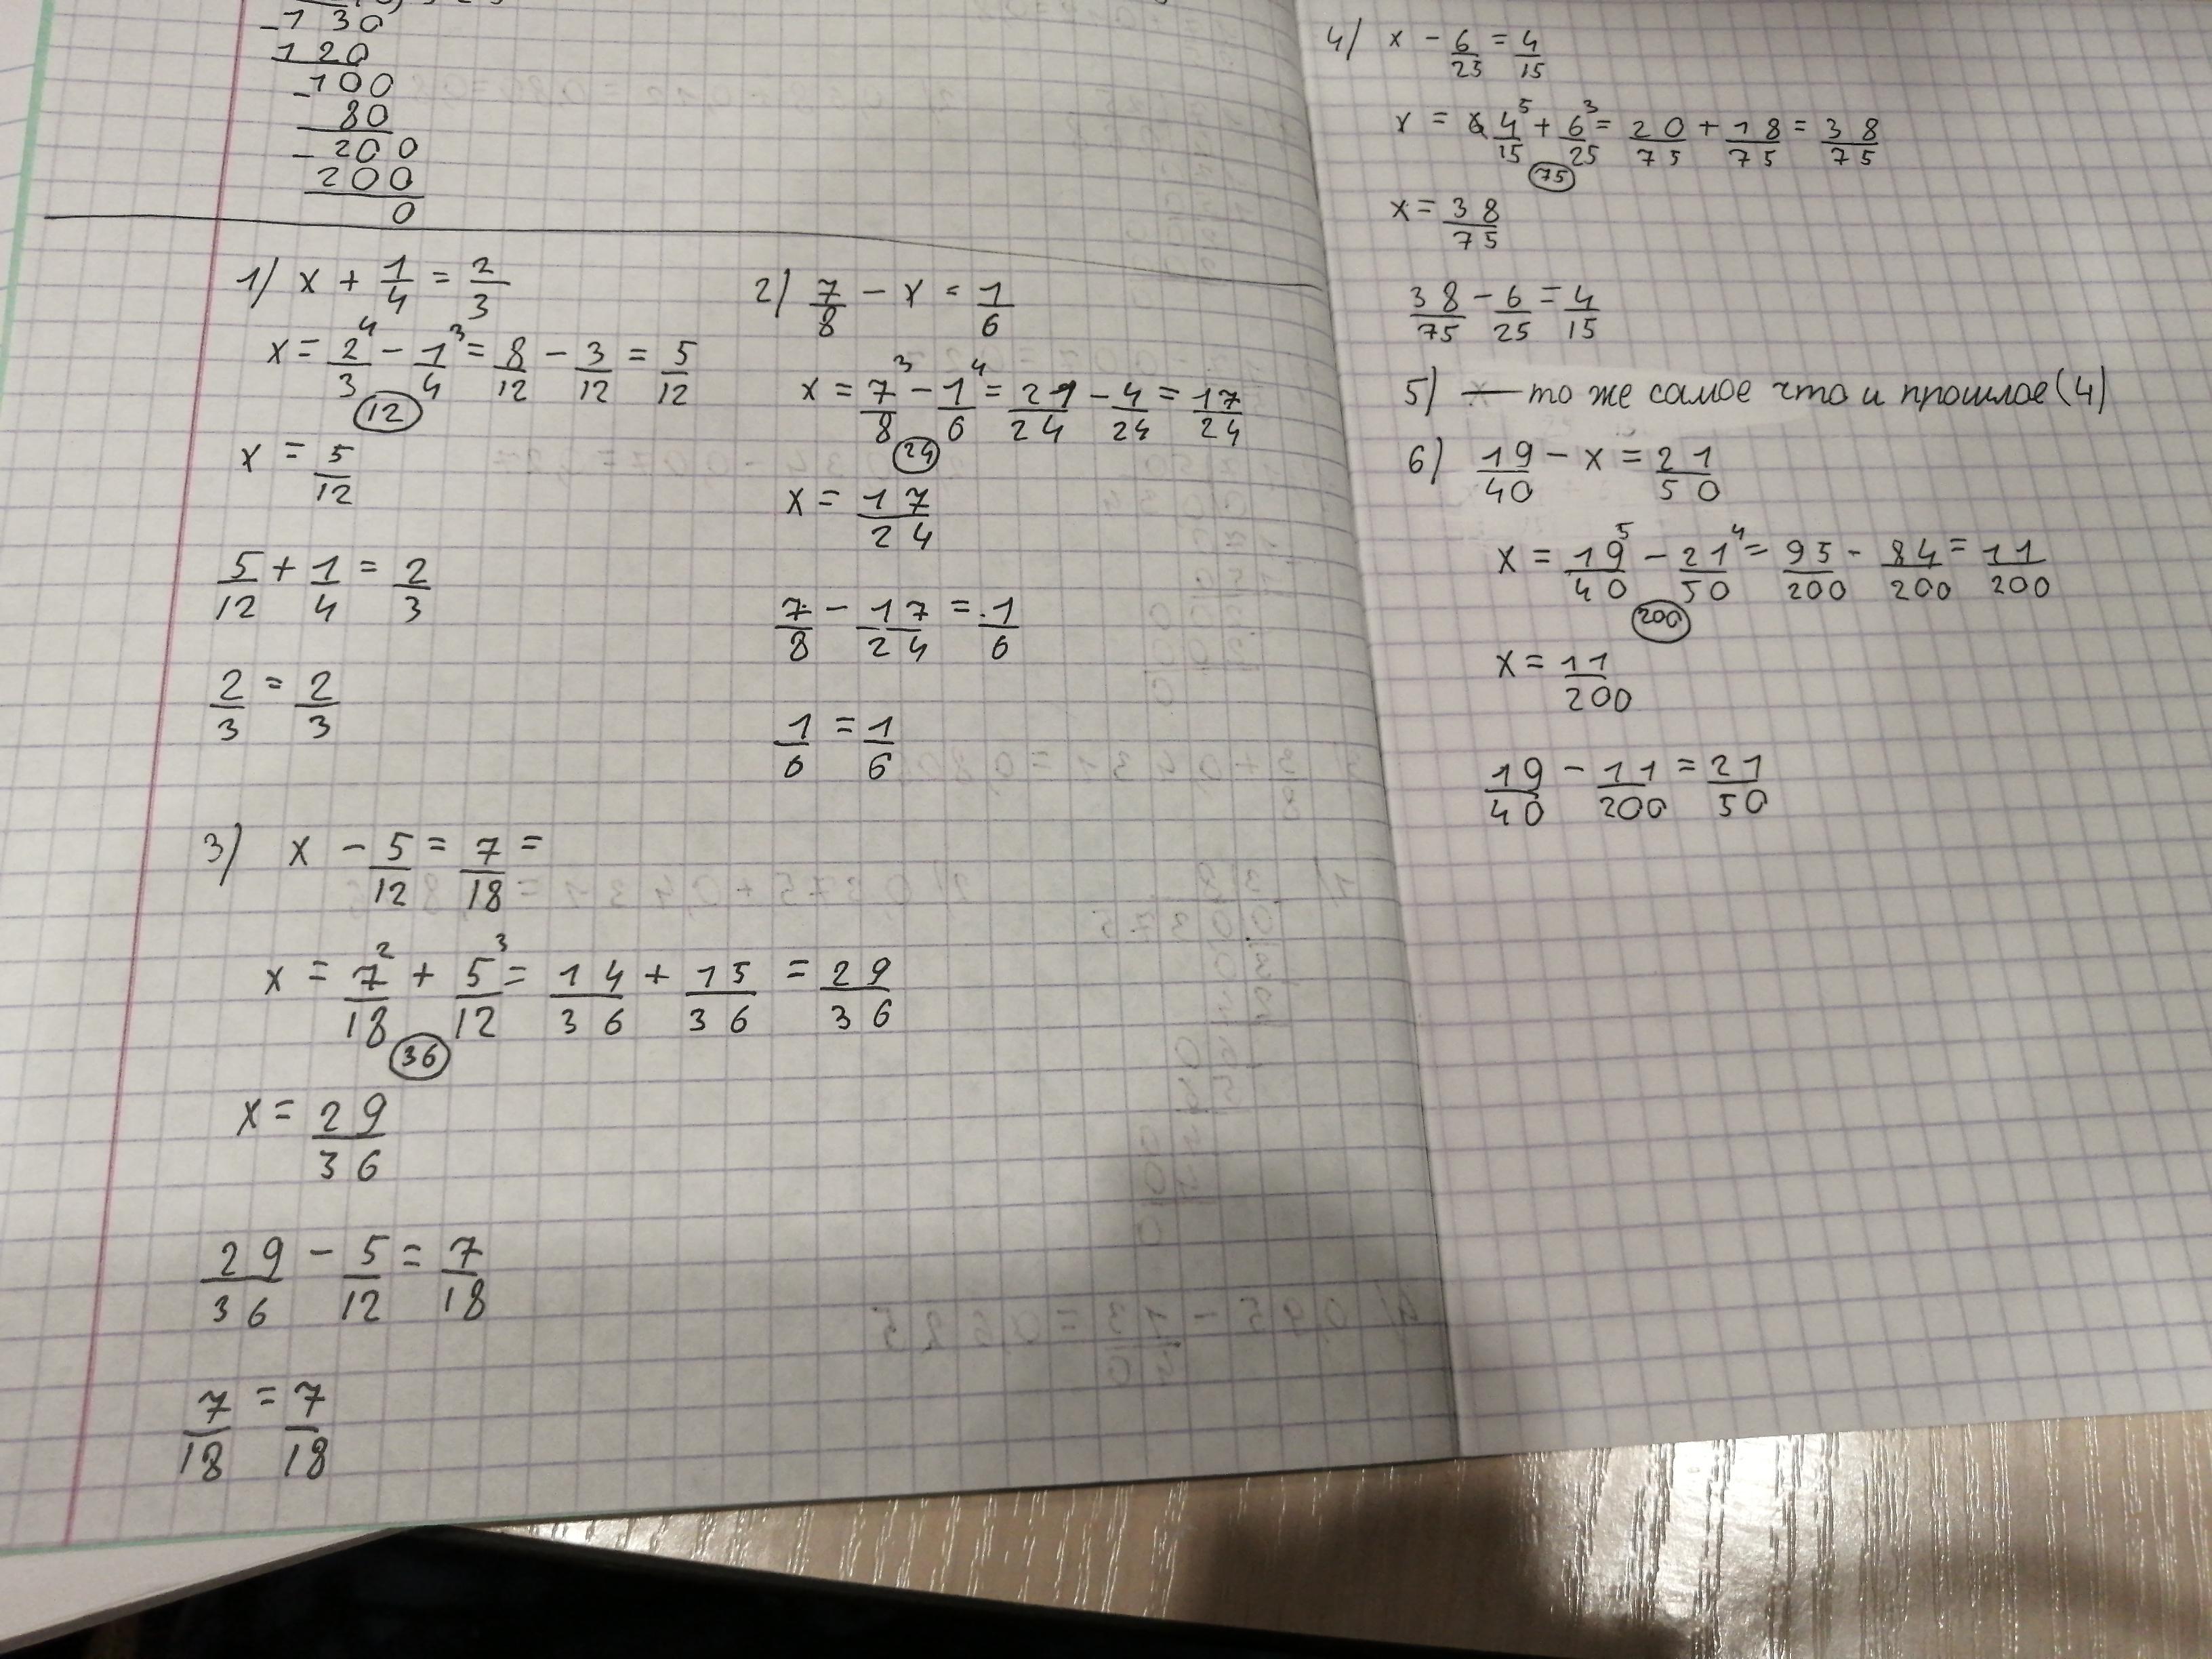 -130
120
-100
80
-200
200
0
1) x + 1/4 = 2/3
x = 2/3 ⁴ - 1/4 ³ = 8/12 - 3/12 = 5/12
12
x = 5/12
5/12 + 1/4 = 2/3
2/3 = 2/3
2) 7/8 - x = 1/6
x = 7/8 ³ - 1/6 ⁴ = 21/24 - 4/24 = 17/24
24
x = 17/24
7/8 - 17/24 = 1/6
1/6 = 1/6
3) x - 5/12 = 7/18 =
x = 7/18 ² + 5/12 ³ = 14/36 + 15/36 = 29/36
36
x = 29/36
29/36 - 5/12 = 7/18
7/18 = 7/18
4) x - 6/25 = 4/15
x = 4/15 ⁵ + 6/25 ³ = 20/75 + 18/75 = 38/75
75
x = 38/75
38/75 - 6/25 = 4/15
5) — то же самое что и прошлое (4)
6) 19/40 - x = 21/50
x = 19/40 ⁵ - 21/50 ⁴ = 95/200 - 84/200 = 11/200
200
x = 11/200
19/40 - 11/200 = 21/50